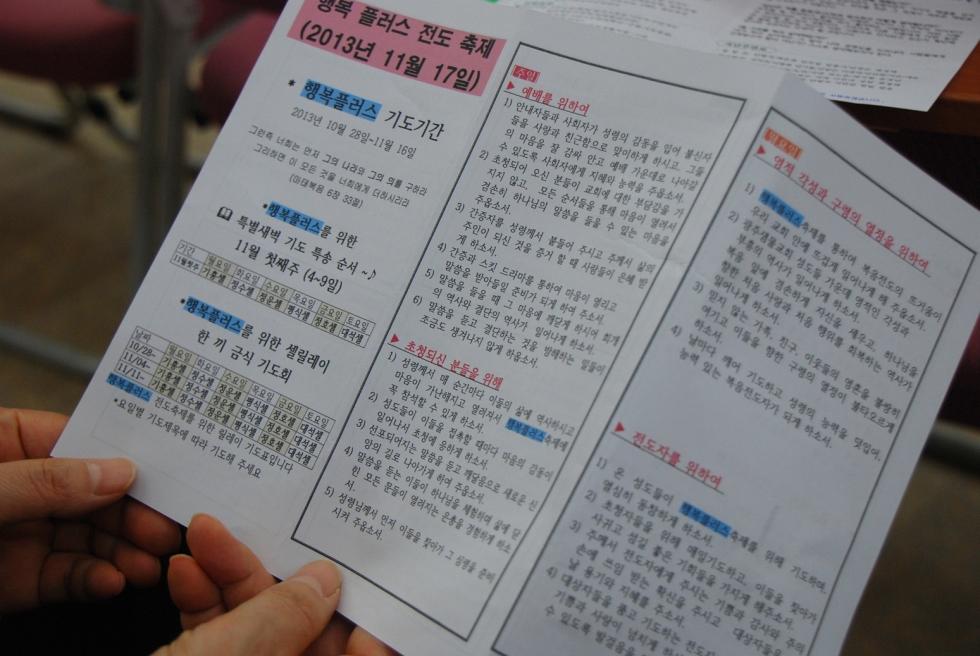 행복 플러스 전도 축제
(2013년 11월 17일)
* 행복플러스 기도기간
2013년 10월 28일~11월 16일
그런즉 너희는 먼저 그의 나라와 그의 의를 구하라
그리하면 이 모든 것을 너희에게 더하시리라
(마태복음 6장 33절)
*행복플러스를 위한
특별새벽 기도 특송 순서 ~♪
11월 첫째주 (4-9일)
기간 월요일 화요일 수요일 목요일 금요일 토요일
11월첫주 기흥셀 정수셀 정운셀 평식셀 정호셀 대석셀
*행복플러스를 위한 셀릴레이
한 끼 금식 기도회
날짜 월요일 화요일 수요일 목요일 금요일 토요일
10/28~ 기흥셀 정수셀 정운셀 평식셀 정호셀 대석셀
11/04~ 기흥셀 정수셀 정운셀 평식셀 정호셀 대석셀
11/11~ 기흥셀 정수셀 정운셀 평식셀 정호셀 대석셀
행복플러스 전도축제를 위한 릴레이 기도표입니다
*요일별 기도제목에 따라 기도해 주세요
주일
▶ 예배를 위하여
1) 안내자들과 사회자가 성령의 감동을 입어 불신자
들을 사랑과 친근함으로 맞이하게 하시고, 그들
의 마음을 잘 감싸 안고 예배 가운데로 나아갈
수 있도록 사회자에게 지혜와 능력을 주옵소서.
2) 초청되어 오신 분들이 교회에 대한 부담감을 가
지지 않고, 모든 순서들을 통해 마음이 열려서
경손히 하나님의 말씀을 들을 수 있는 마음을
주옵소서.
3) 간증자를 성령께서 붙들어 주시고 주께서 삶의
주인이 되신 것을 증거 할 때 사람들이 은혜 받
게 하소서.
4) 간증과 스킷 드라마를 통하여 마음이 열리고
말씀을 받아들일 준비가 되게 하여 주소서.
5) 말씀을 들을 때 그 마음에 깨닫게 하시며 회개
의 역사와 결단의 역사가 일어나게 하소서.
6) 말씀을 듣고 결단하는 것을 방해하는 일들이
조금도 생겨나지 않게 하옵소서.
▶ 초청되신 분들을 위해
1) 성령께서 매 순간마다 이들의 삶에 역사하시고
마음이 가난해지고 열려져서 행복플러스축제에
꼭 참석할 수 있게 하소서.
2) 성도들이 이들을 접촉할 때마다 마음의 감동이
일어나서 초청에 응하게 하소서.
3) 선포되어지는 말씀을 듣고 깨달음으로 새로운 신
앙의 길로 나아가게 하여 주옵소서.
4) 말씀을 듣는 이들이 하나님을 체험하며 삶에 닫
힌 모든 문들이 열려지는 은총을 경험하게 하소
서.
5) 성령님께서 먼저 이들을 찾아가 그 심령을 준비
시켜 주옵소서.
월요일
▶ 영적 각성과 구령의 열정을 위하여
1) 행복플러스축제를 통하여 복음전도의 뜨거움이
우리 교회 안에 뜨겁게 일어나게 해 주옵소서.
2) 광주샘물교회 성도들 가운데 영적인 각성과
부흥의 역사가 일어나게 하소서.
복음 앞에 겸손하게 자신을 깨우고, 하나님을
향한 처음 사랑과 처음 행위를 회복하는 역사가
일어나게 하소서.
3) 믿지 않는 가족, 친구, 이웃들의 영혼을 불쌍히
여기고 이들을 향한 구령의 열정이 불타오르게
하소서.
4) 날마다 깨어 기도하고 성령의 능력을 덧입어,
능력 있는 복음전도자가 되게 하소서.
▶ 전도자를 위하여
1) 온 성도들이 행복플러스축제를 위해 기도하며,
열심히 동참하게 하소서.
2) 초청자들을 위해 매일기도하고, 이들을 찾아가
사귀고 섬길 좋은 기회들을 가지게 해주소서.
3) 주께서 전도자에게 주시는 기쁨과 감사와 주의
손에 쓰임 받는 확신을 주시고 대상자들을
날 용기와 지혜를 주소서.
4) 대상자들을 품고 기도하는 전도자
기쁨과 사랑이 넘치게 하시
수 있도록 발걸음을